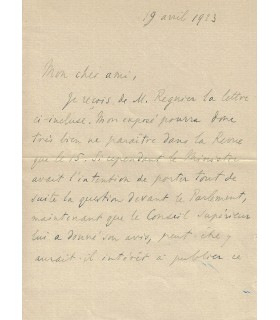 19 avril 1923
Mon cher ami,
Je reçois de M. Regnier la lettre
ci-incluse. Mon exposé pourra donc
très bien ne paraître dans la Revue
que le 15. Si cependant le Ministre
avait l'intention de porter tout de
suite la question devant le Parlement,
maintenant que le Conseil Supérieur
lui a donné son avis, peut être
aurait-il intérêt à publier ce